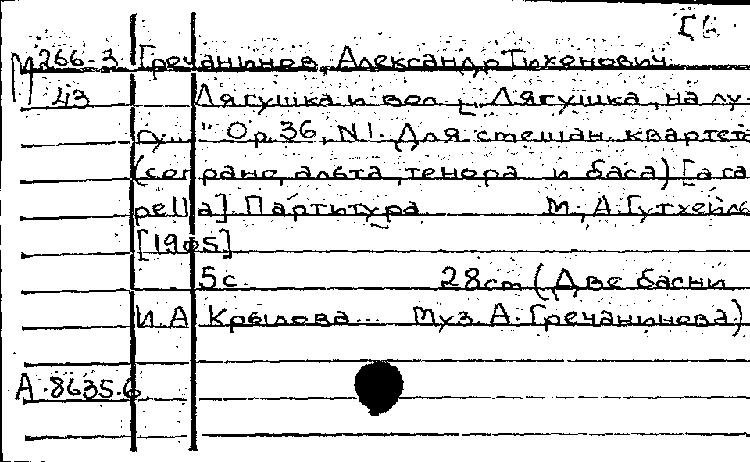 М 266-3 Гречанинов, Александр Тихонович
43 Лягушка и вол „Лягушка, на лу-
гу..." Op. 36, N1. Для смешан. квартета
(сопрано, альта, тенора и баса) [a ca
pella] Партитура М., А. Гутхейль
[1905]
5с 28cm (Две басни
И. А Крылова... Муз. А. Гречанинова)
А.8635.6